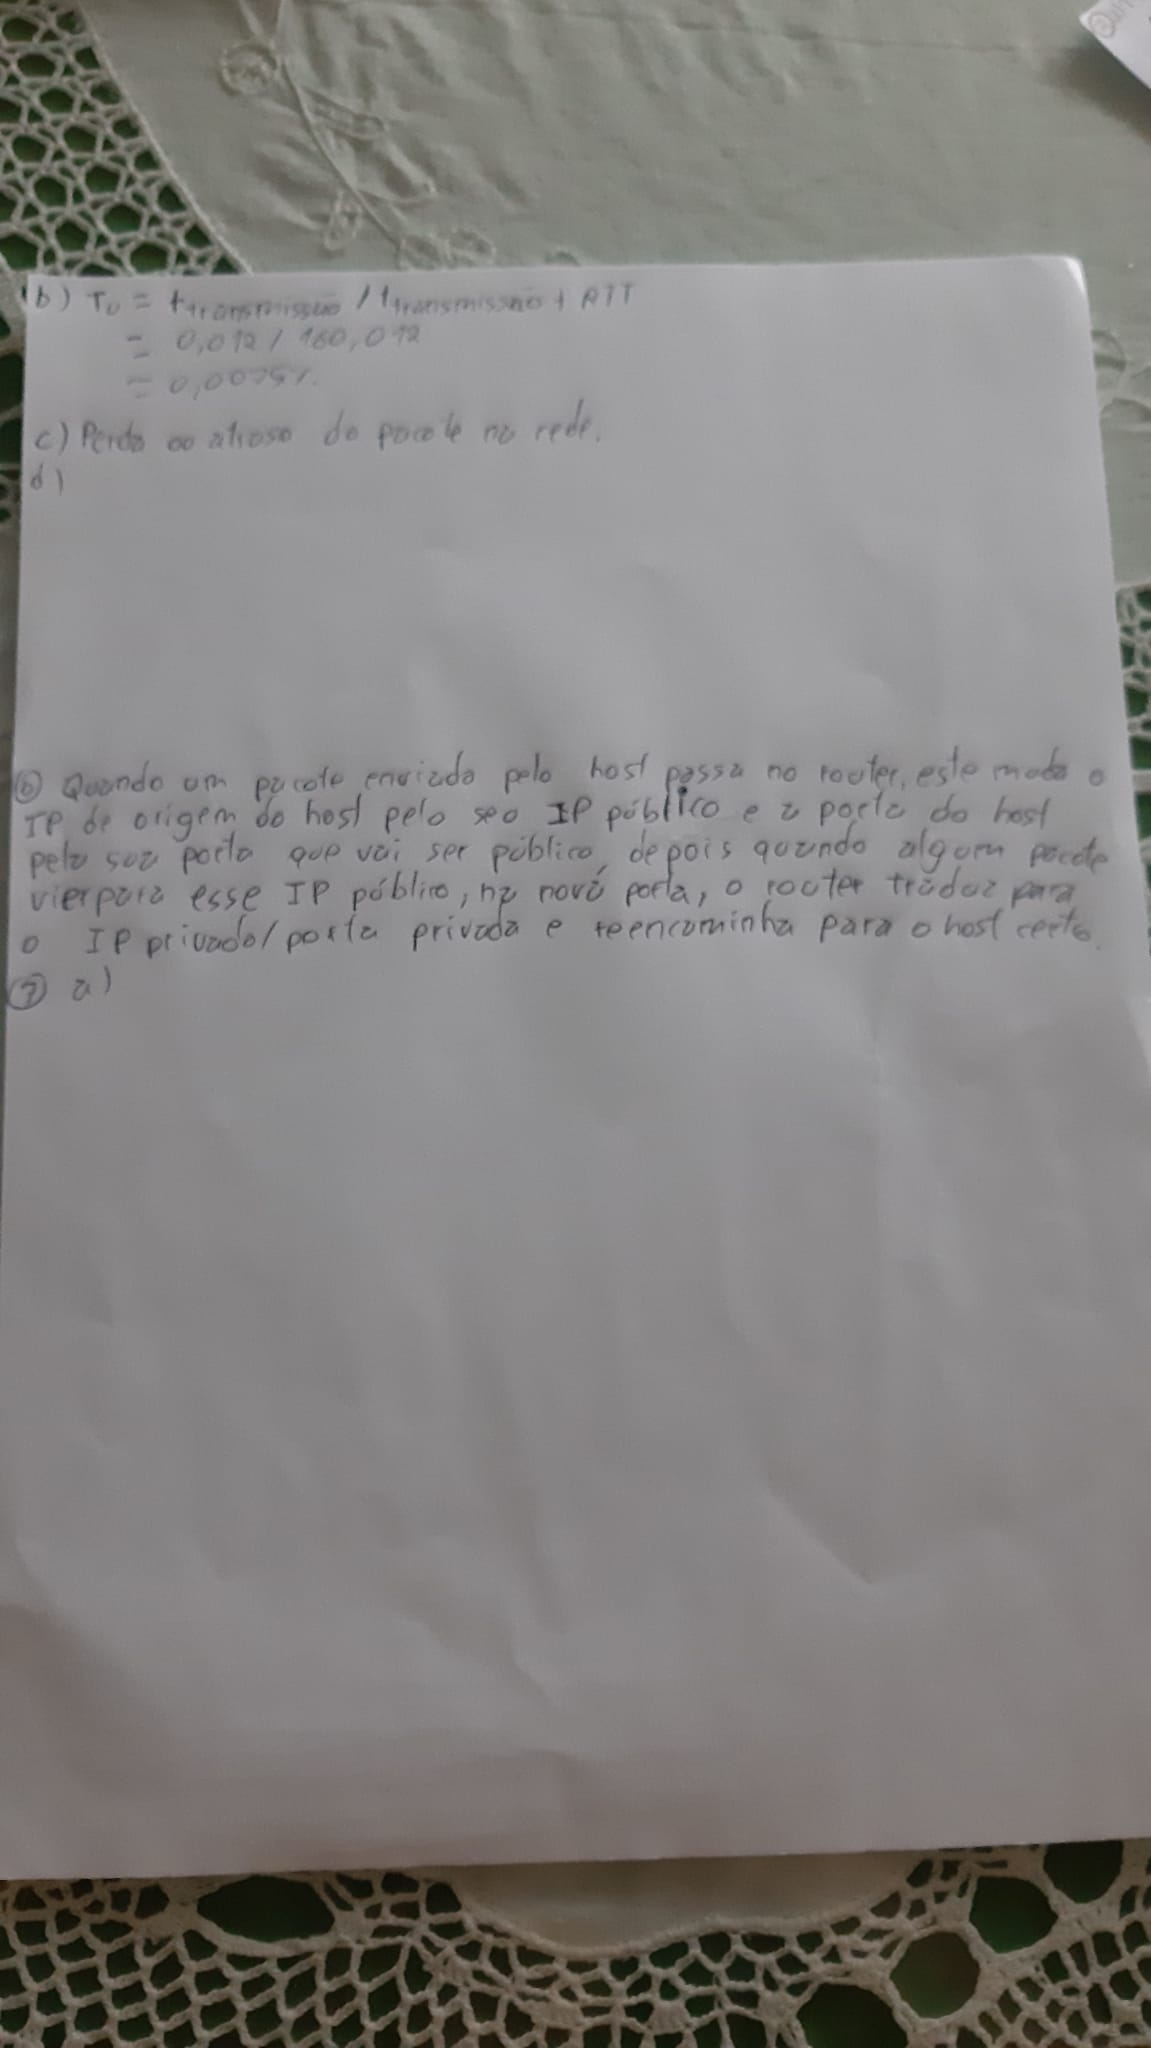 b) Tu = ttransmissão / ttransmissão + RTT
= 0,012 / 160,012
= 0,0075%.
c) Perda ou atraso do pacote na rede.
d)
⑥ Quando um pacote enviado pelo host passa no router, este muda o
IP de origem do host pelo seu IP público e a porta do host
pela sua porta que vai ser pública, depois quando algum pacote
vier para esse IP público, na nova porta, o router traduz para
o IP privado/porta privada e reencaminha para o host certo.
⑦ a)